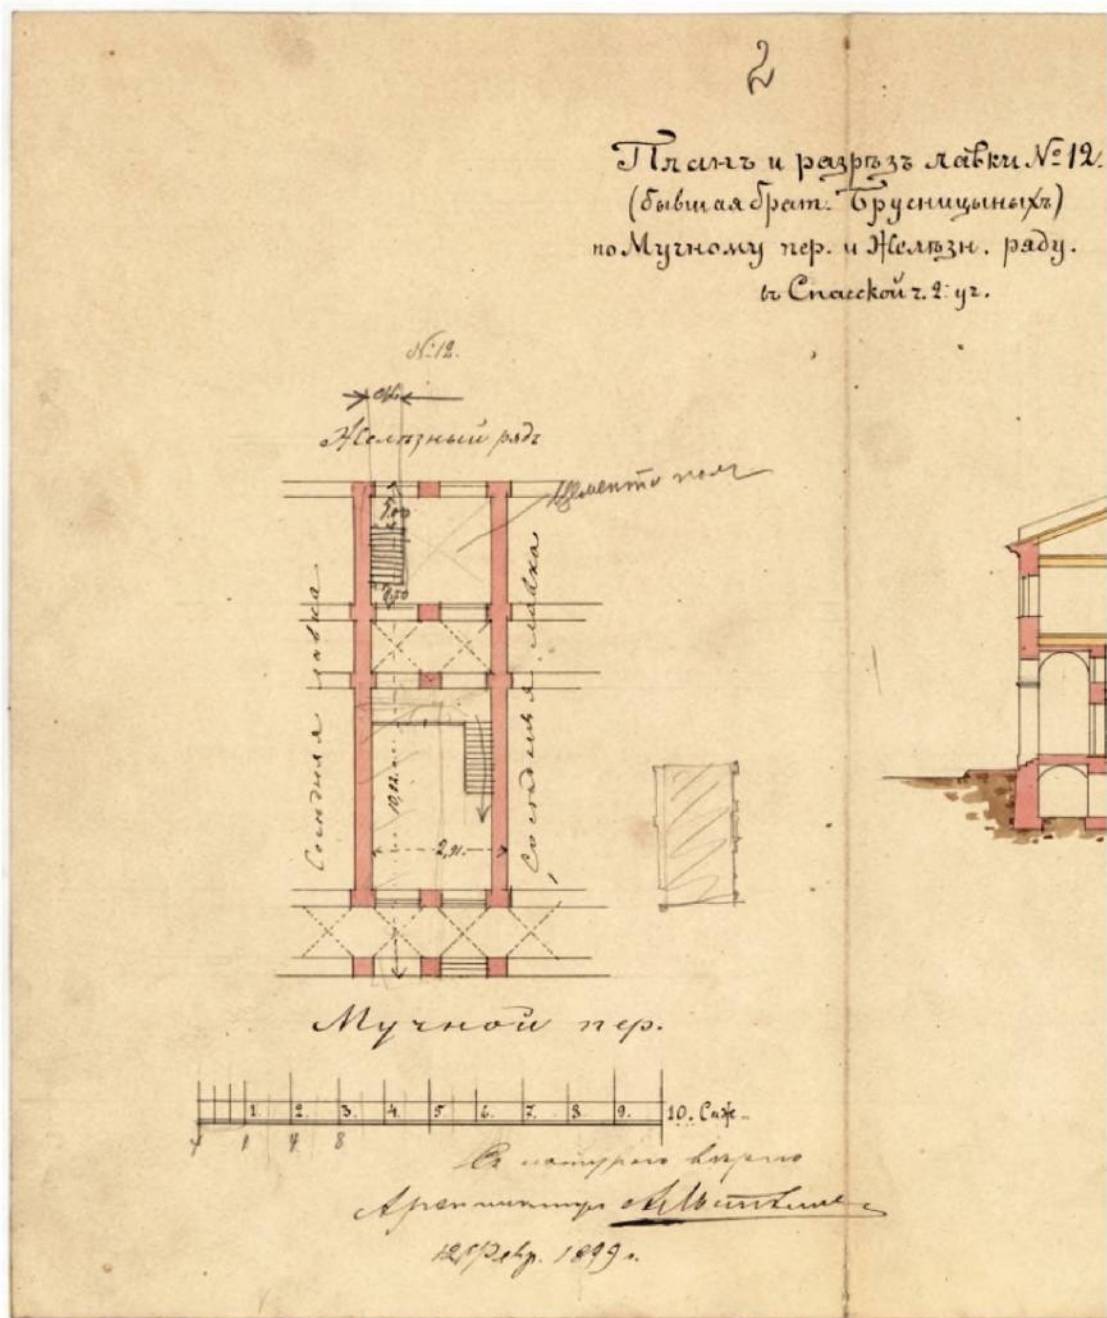 2
Планъ и разрѣзъ лавки № 12.
(бывшая брат. Брусницыныхъ)
по Мучному пер. и Желѣзн. ряду.
въ Спасской ч. 2: уч.
№ 12.
Желѣзный рядъ
полъ
Сосѣдняя лавка
Сосѣдняя лавка
10,82
2,91.
Мучной пер.
1. 2. 3. 4. 5 6. 7. 8 9. 10. Саж.
1 4 8
Съ натурою вѣрно
Архитекторъ
12 Февр. 1899 г.